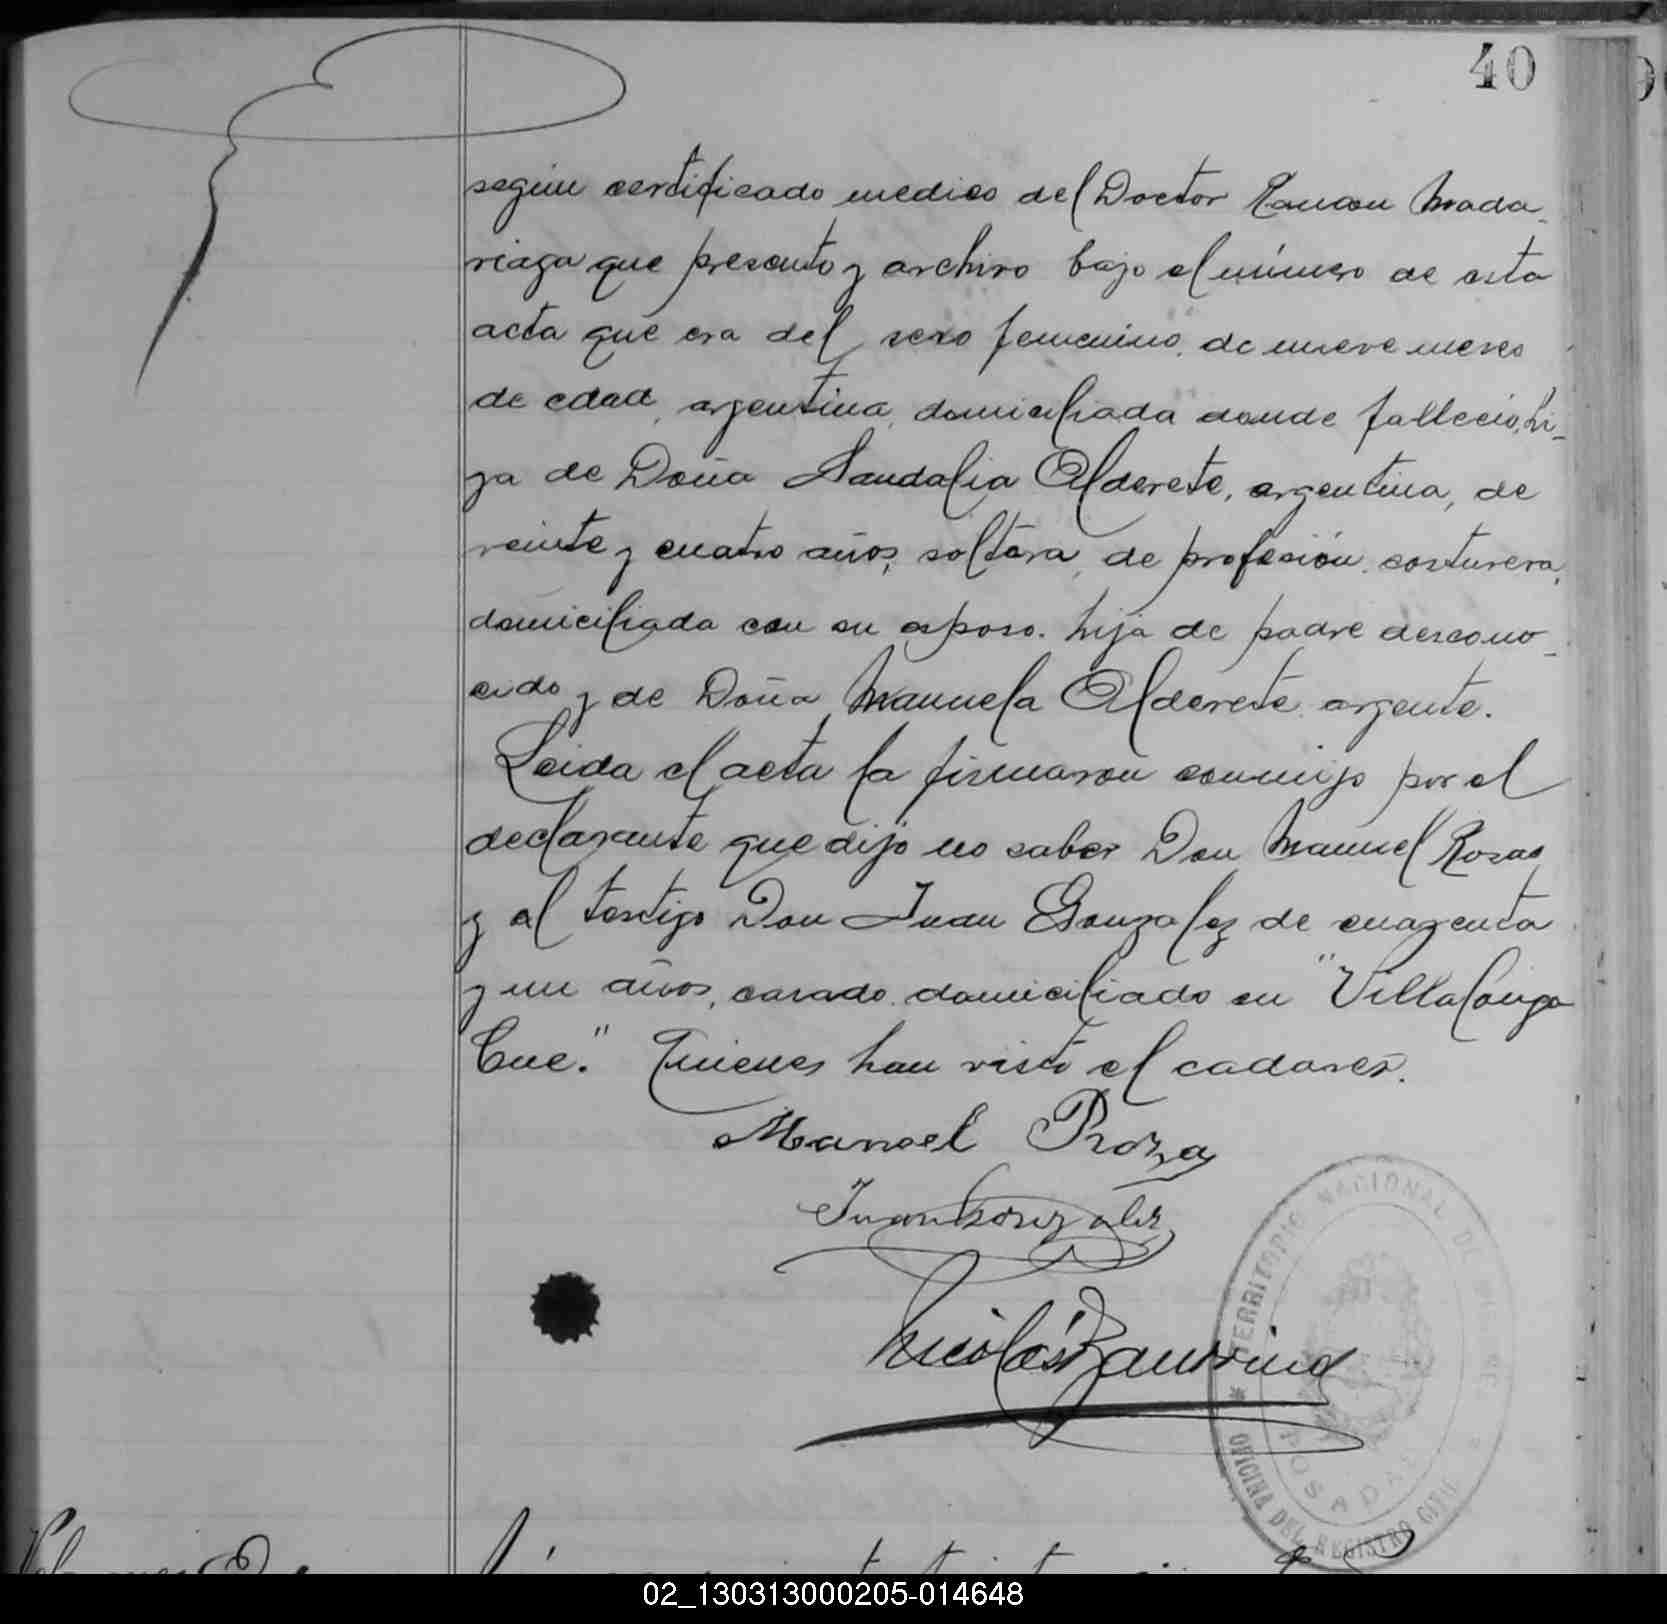 40
segun certificado medico del Doctor Ramon Mada-
riaga que presento y archivo bajo el número de esta
acta que era del sexo femenino, de nueve meses
de edad, argentina, domiciliada donde fallecio, hi-
ja de Doña Sandalia Alderete, argentina, de
veinte y cuatro años, soltera, de profesión costurera,
domiciliada con su esposo. hija de padre descono-
cido y de Doña Manuela Alderete argente.
Leida el acta la firmaron conmigo por el
declarante que dijo no saber Don Manuel Rosas
y el testigo Don Juan Gonzalez de cuarenta
y un años, casado, domiciliado en "Villalonga
Cue." Quienes han visto el cadaver.
Manoel Roza
Juan Gonzalez
Nicolás
TERRITORIO NACIONAL DE MISIONES
POSADAS
OFICINA DEL REGISTRO CIVIL
02_130313000205-014648